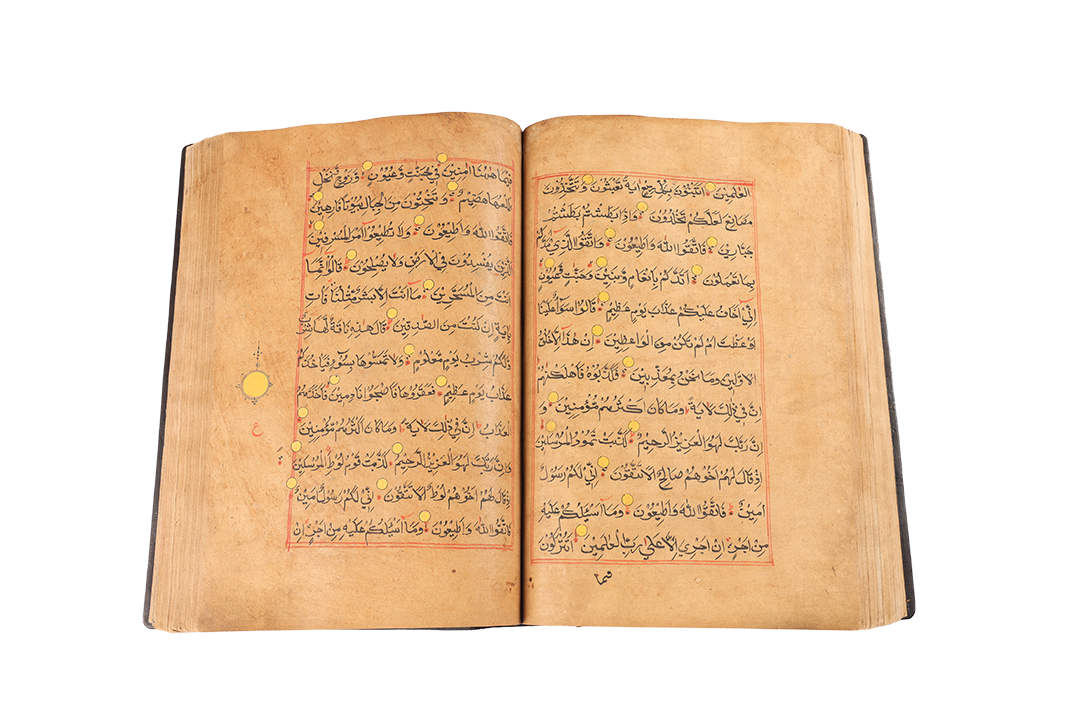 العٰلمِينَ اَتَبْنُونَ بِكُلِّ رِيعٍ اٰيَةً تَعْبَثُونَ وَتَتَّخِذُونَ
مَصَانِعَ لَعَلَّكُمْ تَخْلُدُونَ وَاِذَا بَطَشْتُمْ بَطَشْتُمْ
جَبَّارِينَ فَاتَّقُوا اللّٰهَ وَاَطِيعُونَ وَاتَّقُوا الَّذِي اَمَدَّكُمْ
بِمَا تَعْلَمُونَ اَمَدَّكُمْ بِاَنْعَامٍ وَبَنِينَ وَجَنّٰتٍ وَعُيُونٍ
اِنِّي اَخَافُ عَلَيْكُمْ عَذَابَ يَوْمٍ عَظِيمٍ قَالُوا سَوَاءٌ عَلَيْنَا
اَوَعَظْتَ اَمْ لَمْ تَكُنْ مِنَ الْوَاعِظِينَ اِنْ هٰذَا اِلَّا خُلُقُ
الْاَوَّلِينَ وَمَا نَحْنُ بِمُعَذَّبِينَ فَكَذَّبُوهُ فَاَهْلَكْنٰهُمْ
اِنَّ فِي ذٰلِكَ لَاٰيَةً وَمَا كَانَ اَكْثَرُهُمْ مُؤْمِنِينَ وَ
اِنَّ رَبَّكَ لَهُوَ الْعَزِيزُ الرَّحِيمُ كَذَّبَتْ ثَمُودُ الْمُرْسَلِينَ
اِذْ قَالَ لَهُمْ اَخُوهُمْ صَالِحٌ اَلَا تَتَّقُونَ اِنِّي لَكُمْ رَسُولٌ
اَمِينٌ فَاتَّقُوا اللّٰهَ وَاَطِيعُونَ وَمَا اَسْئَلُكُمْ عَلَيْهِ
مِنْ اَجْرٍ اِنْ اَجْرِيَ اِلَّا عَلٰى رَبِّ الْعٰلَمِينَ اَتُتْرَكُونَ
فيما
فِيمَا هٰهُنَا اٰمِنِينَ فِي جَنّٰتٍ وَعُيُونٍ وَزُرُوعٍ وَنَخْلٍ
طَلْعُهَا هَضِيمٌ وَتَنْحِتُونَ مِنَ الْجِبَالِ بُيُوتًا فَارِهِينَ
فَاتَّقُوا اللّٰهَ وَاَطِيعُونَ وَلَا تُطِيعُوا اَمْرَ الْمُسْرِفِينَ
الَّذِينَ يُفْسِدُونَ فِي الْاَرْضِ وَلَا يُصْلِحُونَ قَالُوا اِنَّمَا
اَنْتَ مِنَ الْمُسَحَّرِينَ مَا اَنْتَ اِلَّا بَشَرٌ مِثْلُنَا فَاْتِ
بِاٰيَةٍ اِنْ كُنْتَ مِنَ الصّٰدِقِينَ قَالَ هٰذِهِ نَاقَةٌ لَهَا شِرْبٌ
وَلَكُمْ شِرْبُ يَوْمٍ مَعْلُومٍ وَلَا تَمَسُّوهَا بِسُوءٍ فَيَاْخُذَكُمْ
عَذَابُ يَوْمٍ عَظِيمٍ فَعَقَرُوهَا فَاَصْبَحُوا نَادِمِينَ فَاَخَذَهُمُ
الْعَذَابُ اِنَّ فِي ذٰلِكَ لَاٰيَةً وَمَا كَانَ اَكْثَرُهُمْ مُؤْمِنِينَ
وَاِنَّ رَبَّكَ لَهُوَ الْعَزِيزُ الرَّحِيمُ كَذَّبَتْ قَوْمُ لُوطٍ الْمُرْسَلِينَ
اِذْ قَالَ لَهُمْ اَخُوهُمْ لُوطٌ اَلَا تَتَّقُونَ اِنِّي لَكُمْ رَسُولٌ اَمِينٌ
فَاتَّقُوا اللّٰهَ وَاَطِيعُونَ وَمَا اَسْئَلُكُمْ عَلَيْهِ مِنْ اَجْرٍ اِنْ
ع